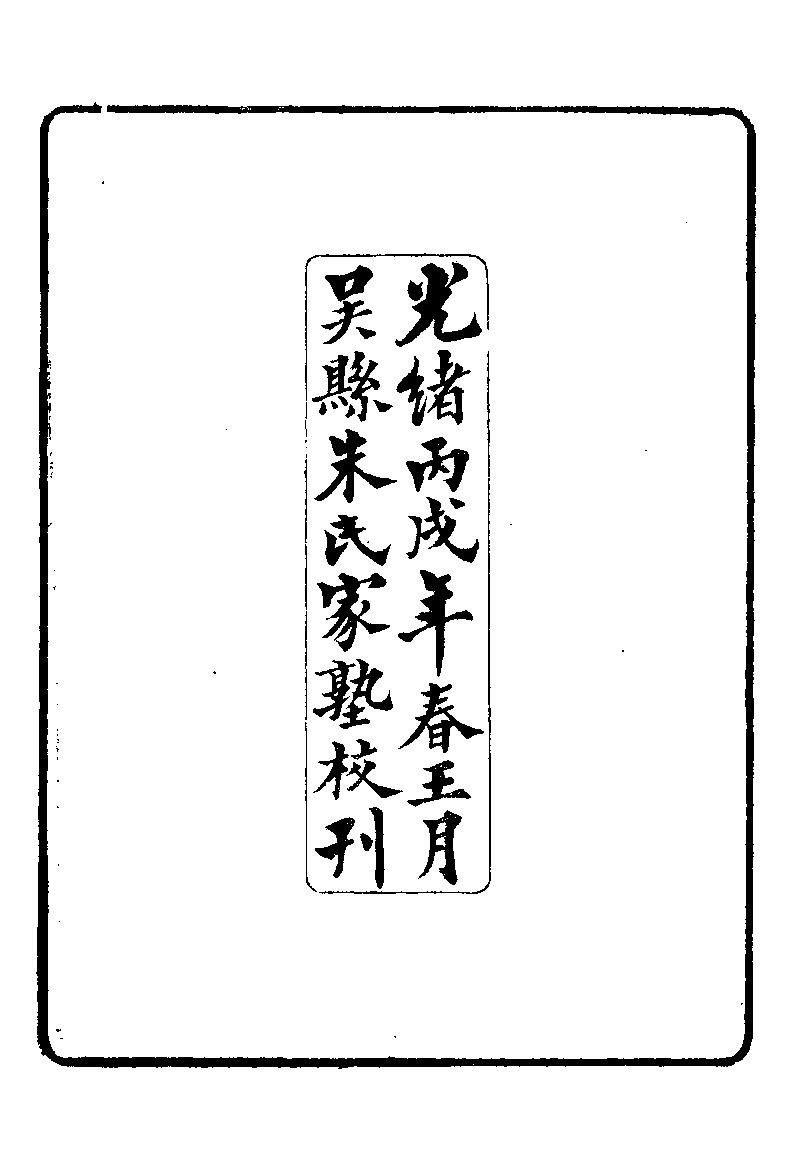 光緒丙戌年春王月
吳縣朱氏家塾校刊